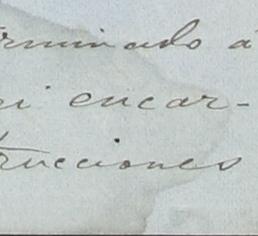 rminado á
i encar-
trucciones